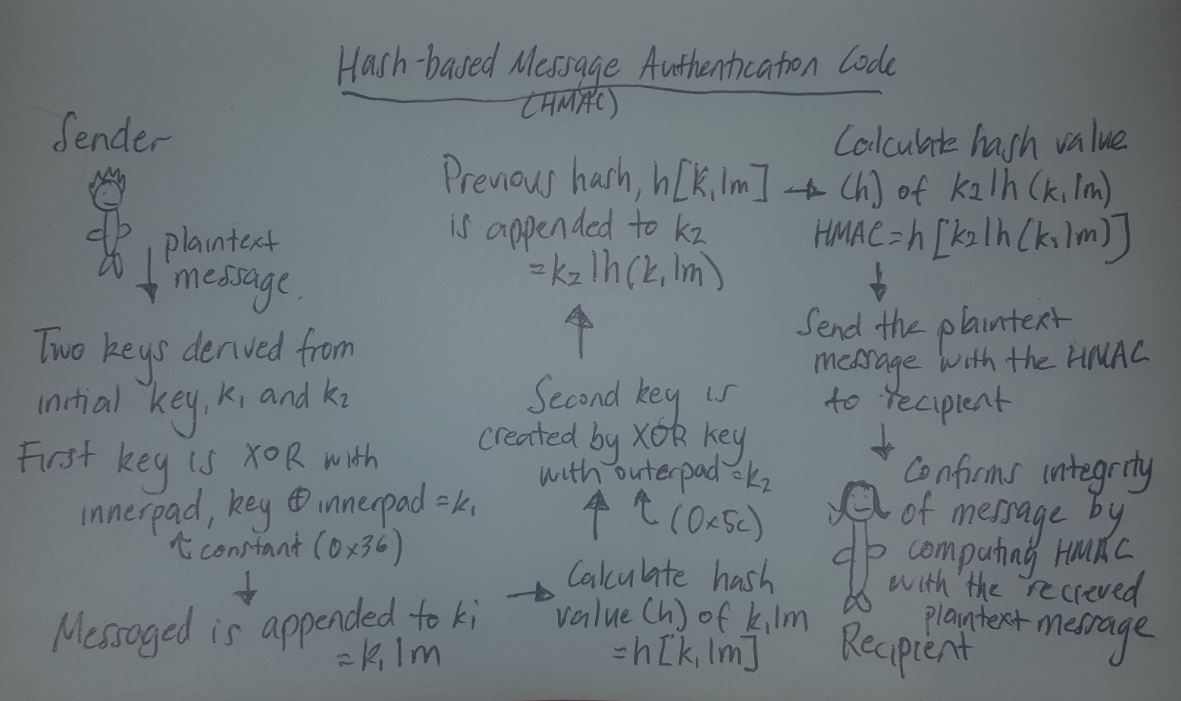 Hash-based Message Authentication Code
(HMAC)
Sender
plaintext
message.
Two keys derived from
initial key, k₁ and k₂
First key is XOR with
innerpad, key ⊕ innerpad = k₁
↑ constant (0x36)
Messaged is appended to k₁
= k₁|m
Calculate hash
value (h) of k₁|m
=h[k₁|m]
Second key is
created by XOR key
with outerpad = k₂
(0x5c)
Previous hash, h[k₁|m]
is appended to k₂
=k₂|h(k₁|m)
Calculate hash value
(h) of k₂|h(k₁|m)
HMAC=h[k₂|h(k₁|m)]
Send the plaintext
message with the HMAC
to recipient
Confirms integrity
of message by
computing HMAC
with the recieved
plaintext message
Recipient